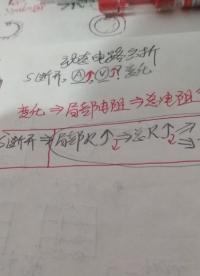 动态电路分析
S断开,Ⓐ↑,Ⓥ↑? 变化
变化⇒局部电阻⇒总电阻
S断开⇒局部R↑⇒总R↑